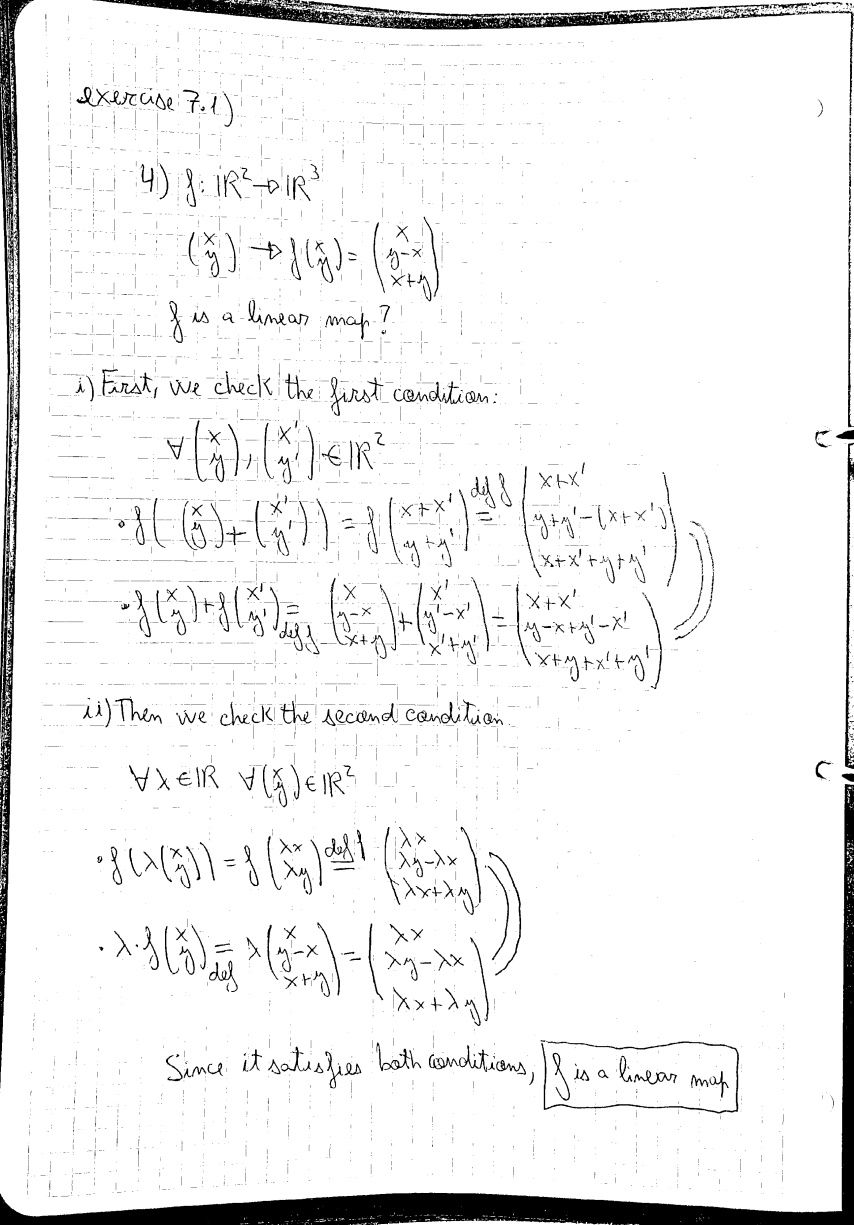 exercise 7.1)
4) f: ℝ² → ℝ³
(x y) → f(x y) = (x y-x x+y)
f is a linear map?
i) First, we check the first condition:
∀ (x y), (x' y') ∈ ℝ²
• f( (x y) + (x' y') ) = f(x+x' y+y') =def f (x+x' y+y'-(x+x') x+x'+y+y')
• f(x y) + f(x' y') =def f (x y-x x+y) + (x' y'-x' x'+y') = (x+x' y-x+y'-x' x+y+x'+y')
ii) Then we check the second condition
∀ λ ∈ ℝ ∀ (x y) ∈ ℝ²
• f(λ(x y)) = f(λx λy) =def f (λx λy-λx λx+λy)
• λ·f(x y) =def λ(x y-x x+y) = (λx λy-λx λx+λy)
Since it satisfies both conditions, f is a linear map